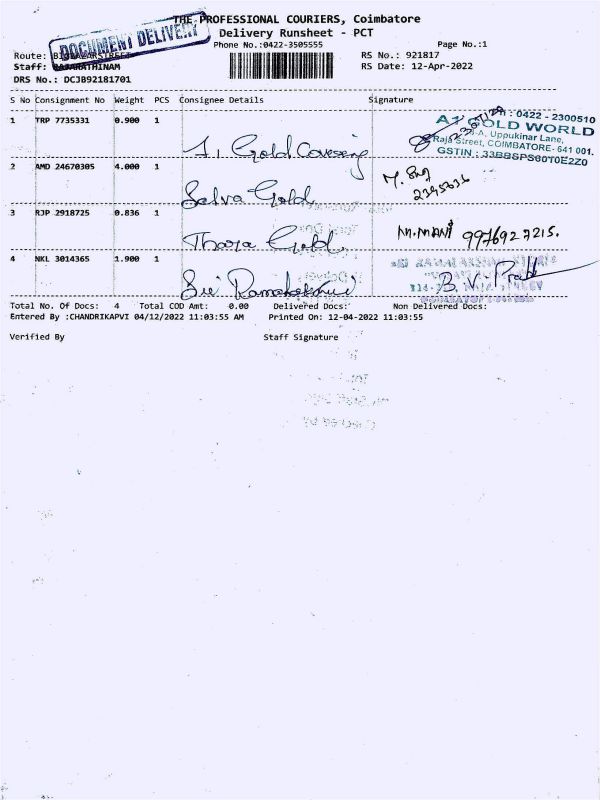 THE PROFESSIONAL COURIERS, Coimbatore
DOCUMENT DELIVERY
Delivery Runsheet - PCT
Phone No.:0422-3505555
Page No.:1
Route: BIGBAZARSTREET
RS No.: 921817
Staff: RAJARATHINAM
RS Date: 12-Apr-2022
DRS No.: DCJB92181701
S No Consignment No Weight PCS Consignee Details Signature
1 TRP 7735331 0.900 1
Gold Covering
A1 GOLD WORLD
Ph : 0422 - 2300510
Uppukinar Lane,
Raja Street, COIMBATORE- 641 001.
2 AMD 24670305 4.000 1
Selva Gold
3 RJP 2918725 0.836 1
Thara Gold
M.MANI 9976927215.
4 NKL 3014365 1.900 1
Sri
B.V.
Total No. Of Docs: 4 Total COD Amt: 0.00 Delivered Docs: Non Delivered Docs:
Entered By :CHANDRIKAPVI 04/12/2022 11:03:55 AM Printed On: 12-04-2022 11:03:55
Verified By Staff Signature